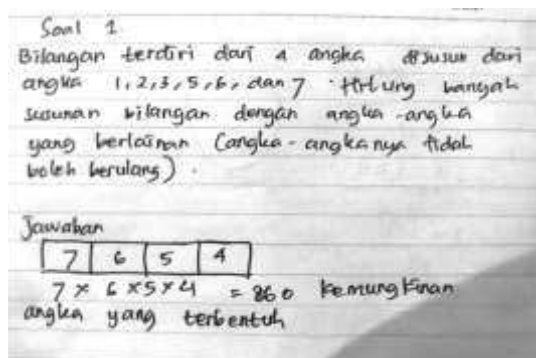 Soal 1
Bilangan terdiri dari 4 angka disusun dari
angka 1, 2, 3, 5, 6, dan 7. Hitung banyak
susunan bilangan dengan angka-angka
yang berlainan (angka-angkanya tidak
boleh berulang).
Jawaban
7 6 5 4
7 × 6 × 5 × 4 = 860 kemungkinan
angka yang terbentuk